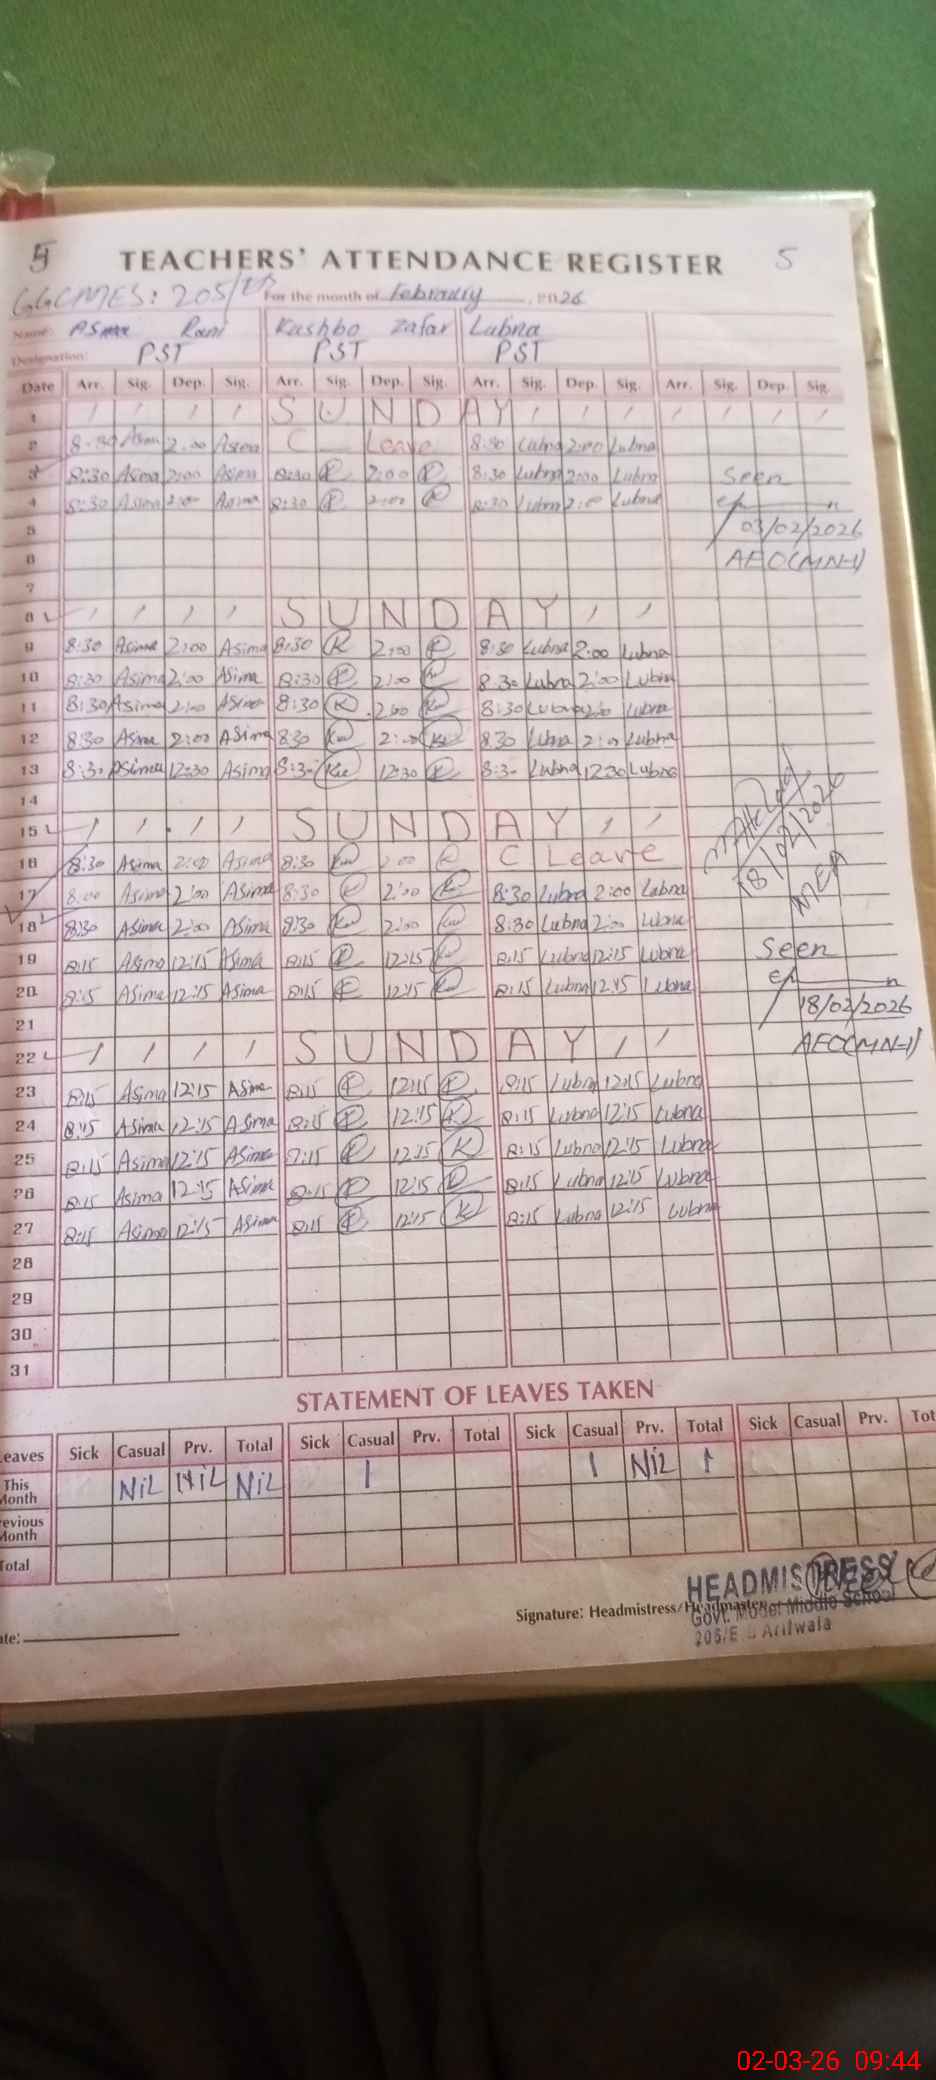 5 TEACHERS' ATTENDANCE REGISTER 5
GGCMES: 205/EB For the month of February, 2026
Name: Asma Rani Kashbo Zafar Lubna
Designation: PST PST PST
Date Arr. Sig. Dep. Sig. Arr. Sig. Dep. Sig. Arr. Sig. Dep. Sig. Arr. Sig. Dep. Sig.
1 SUNDAY
2 8:30 Asima 2:00 Asima C Leave 8:30 Lubna 2:00 Lubna
3 8:30 Asima 2:00 Asima 8:30 2:00 8:30 Lubna 2:00 Lubna Seen
4 8:30 Asima 2:00 Asima 8:30 2:00 8:30 Lubna 2:00 Lubna
5 03/02/2026
6 AEO(MN-1)
7
8 SUNDAY
9 8:30 Asima 2:00 Asima 8:30 K 2:00 8:30 Lubna 2:00 Lubna
10 8:30 Asima 2:00 Asima 8:30 2:00 8:30 Lubna 2:00 Lubna
11 8:30 Asima 2:00 Asima 8:30 K 2:00 8:30 Lubna 2:00 Lubna
12 8:30 Asima 2:00 Asima 8:30 2:00 8:30 Lubna 2:00 Lubna
13 8:30 Asima 12:30 Asima 8:30 12:30 8:30 Lubna 12:30 Lubna
14
15 SUNDAY
16 8:30 Asima 2:00 Asima 8:30 2:00 C Leave 18/02/2026
17 8:00 Asima 2:00 Asima 8:30 2:00 8:30 Lubna 2:00 Lubna MEA
18 8:30 Asima 2:00 Asima 8:30 2:00 8:30 Lubna 2:00 Lubna
19 8:15 Asima 12:15 Asima 8:15 12:15 8:15 Lubna 12:15 Lubna Seen
20 8:15 Asima 12:15 Asima 8:15 12:15 8:15 Lubna 12:15 Lubna
21 18/02/2026
22 SUNDAY AEO(MN-1)
23 8:15 Asima 12:15 Asima 8:15 12:15 8:15 Lubna 12:15 Lubna
24 8:15 Asima 12:15 Asima 8:15 12:15 K 8:15 Lubna 12:15 Lubna
25 8:15 Asima 12:15 Asima 8:15 12:15 K 8:15 Lubna 12:15 Lubna
26 8:15 Asima 12:15 Asima 8:15 12:15 8:15 Lubna 12:15 Lubna
27 8:15 Asima 12:15 Asima 8:15 12:15 K 8:15 Lubna 12:15 Lubna
28
29
30
31
STATEMENT OF LEAVES TAKEN
eaves Sick Casual Prv. Total Sick Casual Prv. Total Sick Casual Prv. Total Sick Casual Prv. Tot
This Month Nil Nil Nil 1 1 Nil 1
evious Month
Total
HEADMISTRESS
Signature: Headmistress/Headmaster
Govt. Model Middle School
205/E.B Arifwala
ate:
02-03-26 09:44